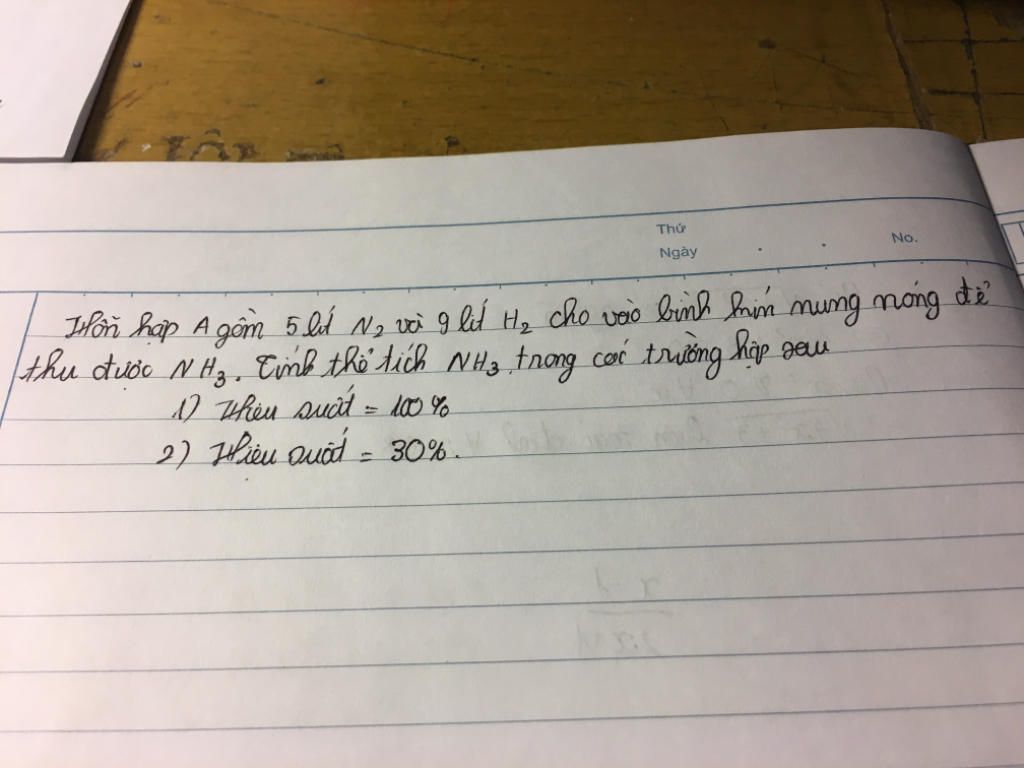 Thứ
Ngày . . No.
Hỗn hợp A gồm 5 lít N2 và 9 lít H2 cho vào bình kín nung nóng để
thu được NH3. Tính thể tích NH3 trong các trường hợp sau
1) Hiệu suất = 100%
2) Hiệu suất = 30%.